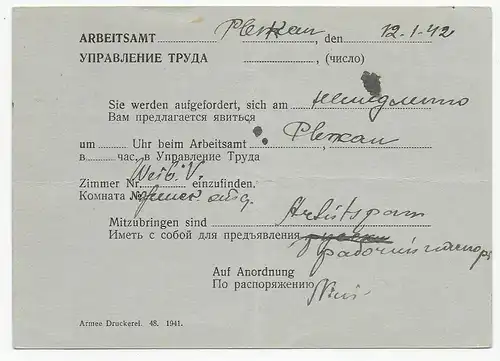 ARBEITSAMT Pleskau, den 12.1.42
УПРАВЛЕНИЕ ТРУДА ............, (число)
Sie werden aufgefordert, sich am немедленно
Вам предлагается явиться
um ........ Uhr beim Arbeitsamt Pleskau
в ........ час., в Управление Труда
Zimmer Nr. Weib. V. einzufinden.
Комната №
Mitzubringen sind Arbeitspass
Иметь с собой для предъявления рабочий паспорт
Auf Anordnung
По распоряжению
Armee Druckerei. 48. 1941.